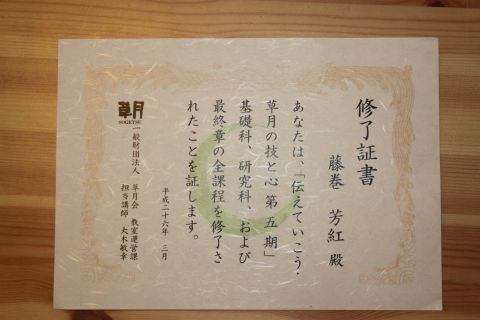 修了証書
藤巻 芳紅 殿
あなたは、「伝えていこう・
草月の技と心 第五期」
基礎科、研究科、および
最終章の全課程を修了さ
れたことを証します。
平成二十六年 三月
草月
SOGETSU
一般財団法人
草月会 教室運営課
担当講師 大木敏幸